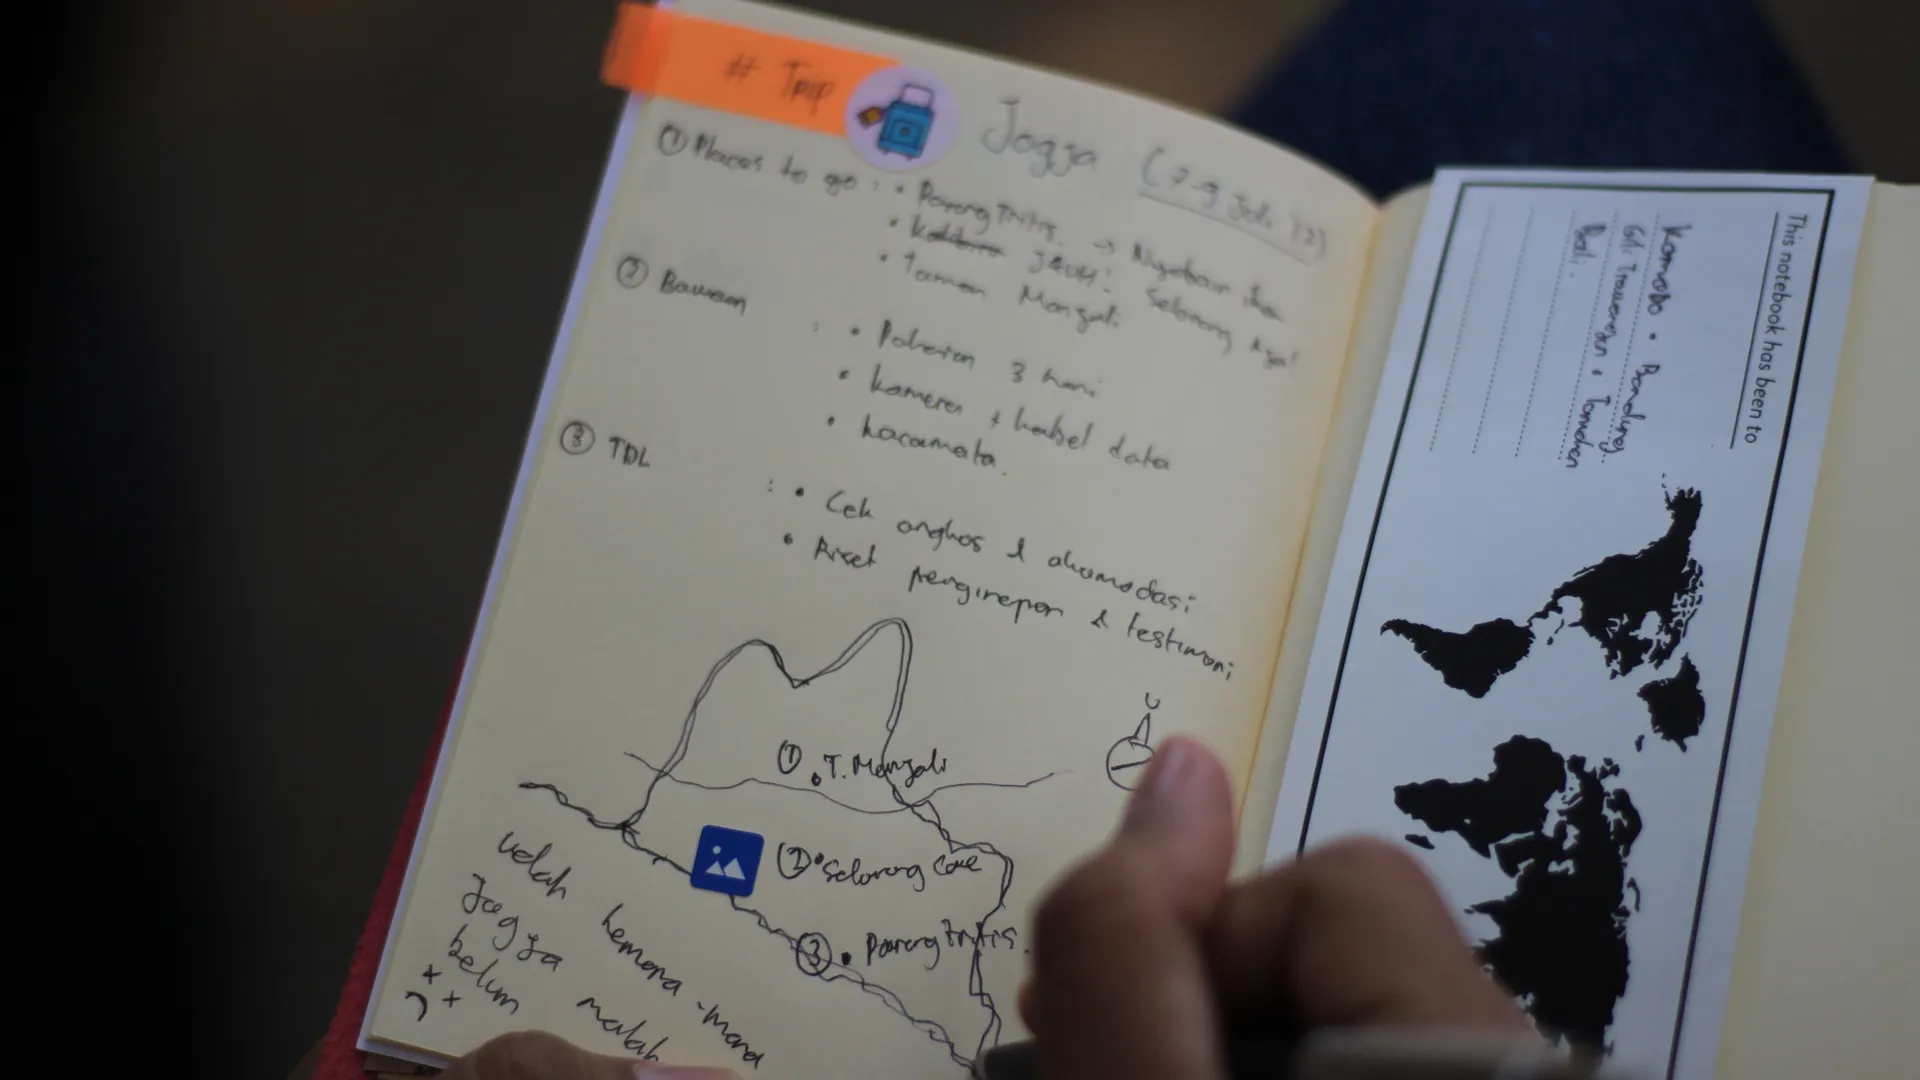 # Trip
Jogja (7-9 Juli '12)
① Places to go : • Parang Tritis. → Ngebair ikan
• JAUH! Selarong
• Taman Manjali
② Bawaan : • Pakaian 3 hari
• kamera + kabel data
• kacamata.
③ TDL : • Cek ongkos & akomodasi
• Riset penginepan & testimoni
U
① . T. Manjali
② • Selarong Cave
③ • Parang Tritis.
udah kemana-mana
Jogja malah
belum
This notebook has been to
Komodo • Bandung
Gili Trawangan •
Bali.